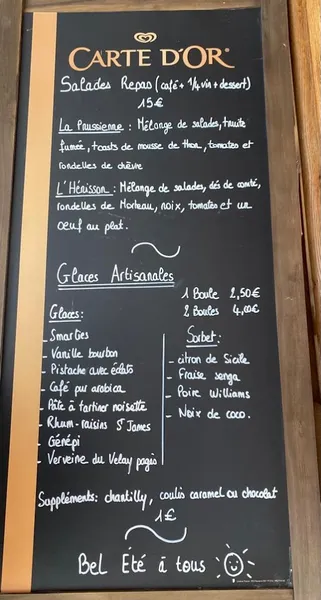 CARTE D'OR
Salades Repas (café + 1/4 vin + dessert)
15€
La Prussienne : Mélange de salades, truite
fumée, toasts de mousse de thon, tomates et
rondelles de chèvre
L'Hérisson : Mélange de salades, dés de comté,
rondelles de Morteau, noix, tomates et un
oeuf au plat.
Glaces Artisanales
1 Boule 2,50€
2 Boules 4,00€
Glaces :
- Smarties
- Vanille bourbon
- Pistache avec éclats
- Café pur arabica
- Pâte à tartiner noisette
- Rhum-raisins St James
- Génépi
- Verveine du Velay pagès
Sorbet :
- citron de Sicile
- Fraise senga
- Poire Williams
- Noix de coco.
Suppléments : chantilly, coulis caramel ou chocolat
1€
Bel Été à tous